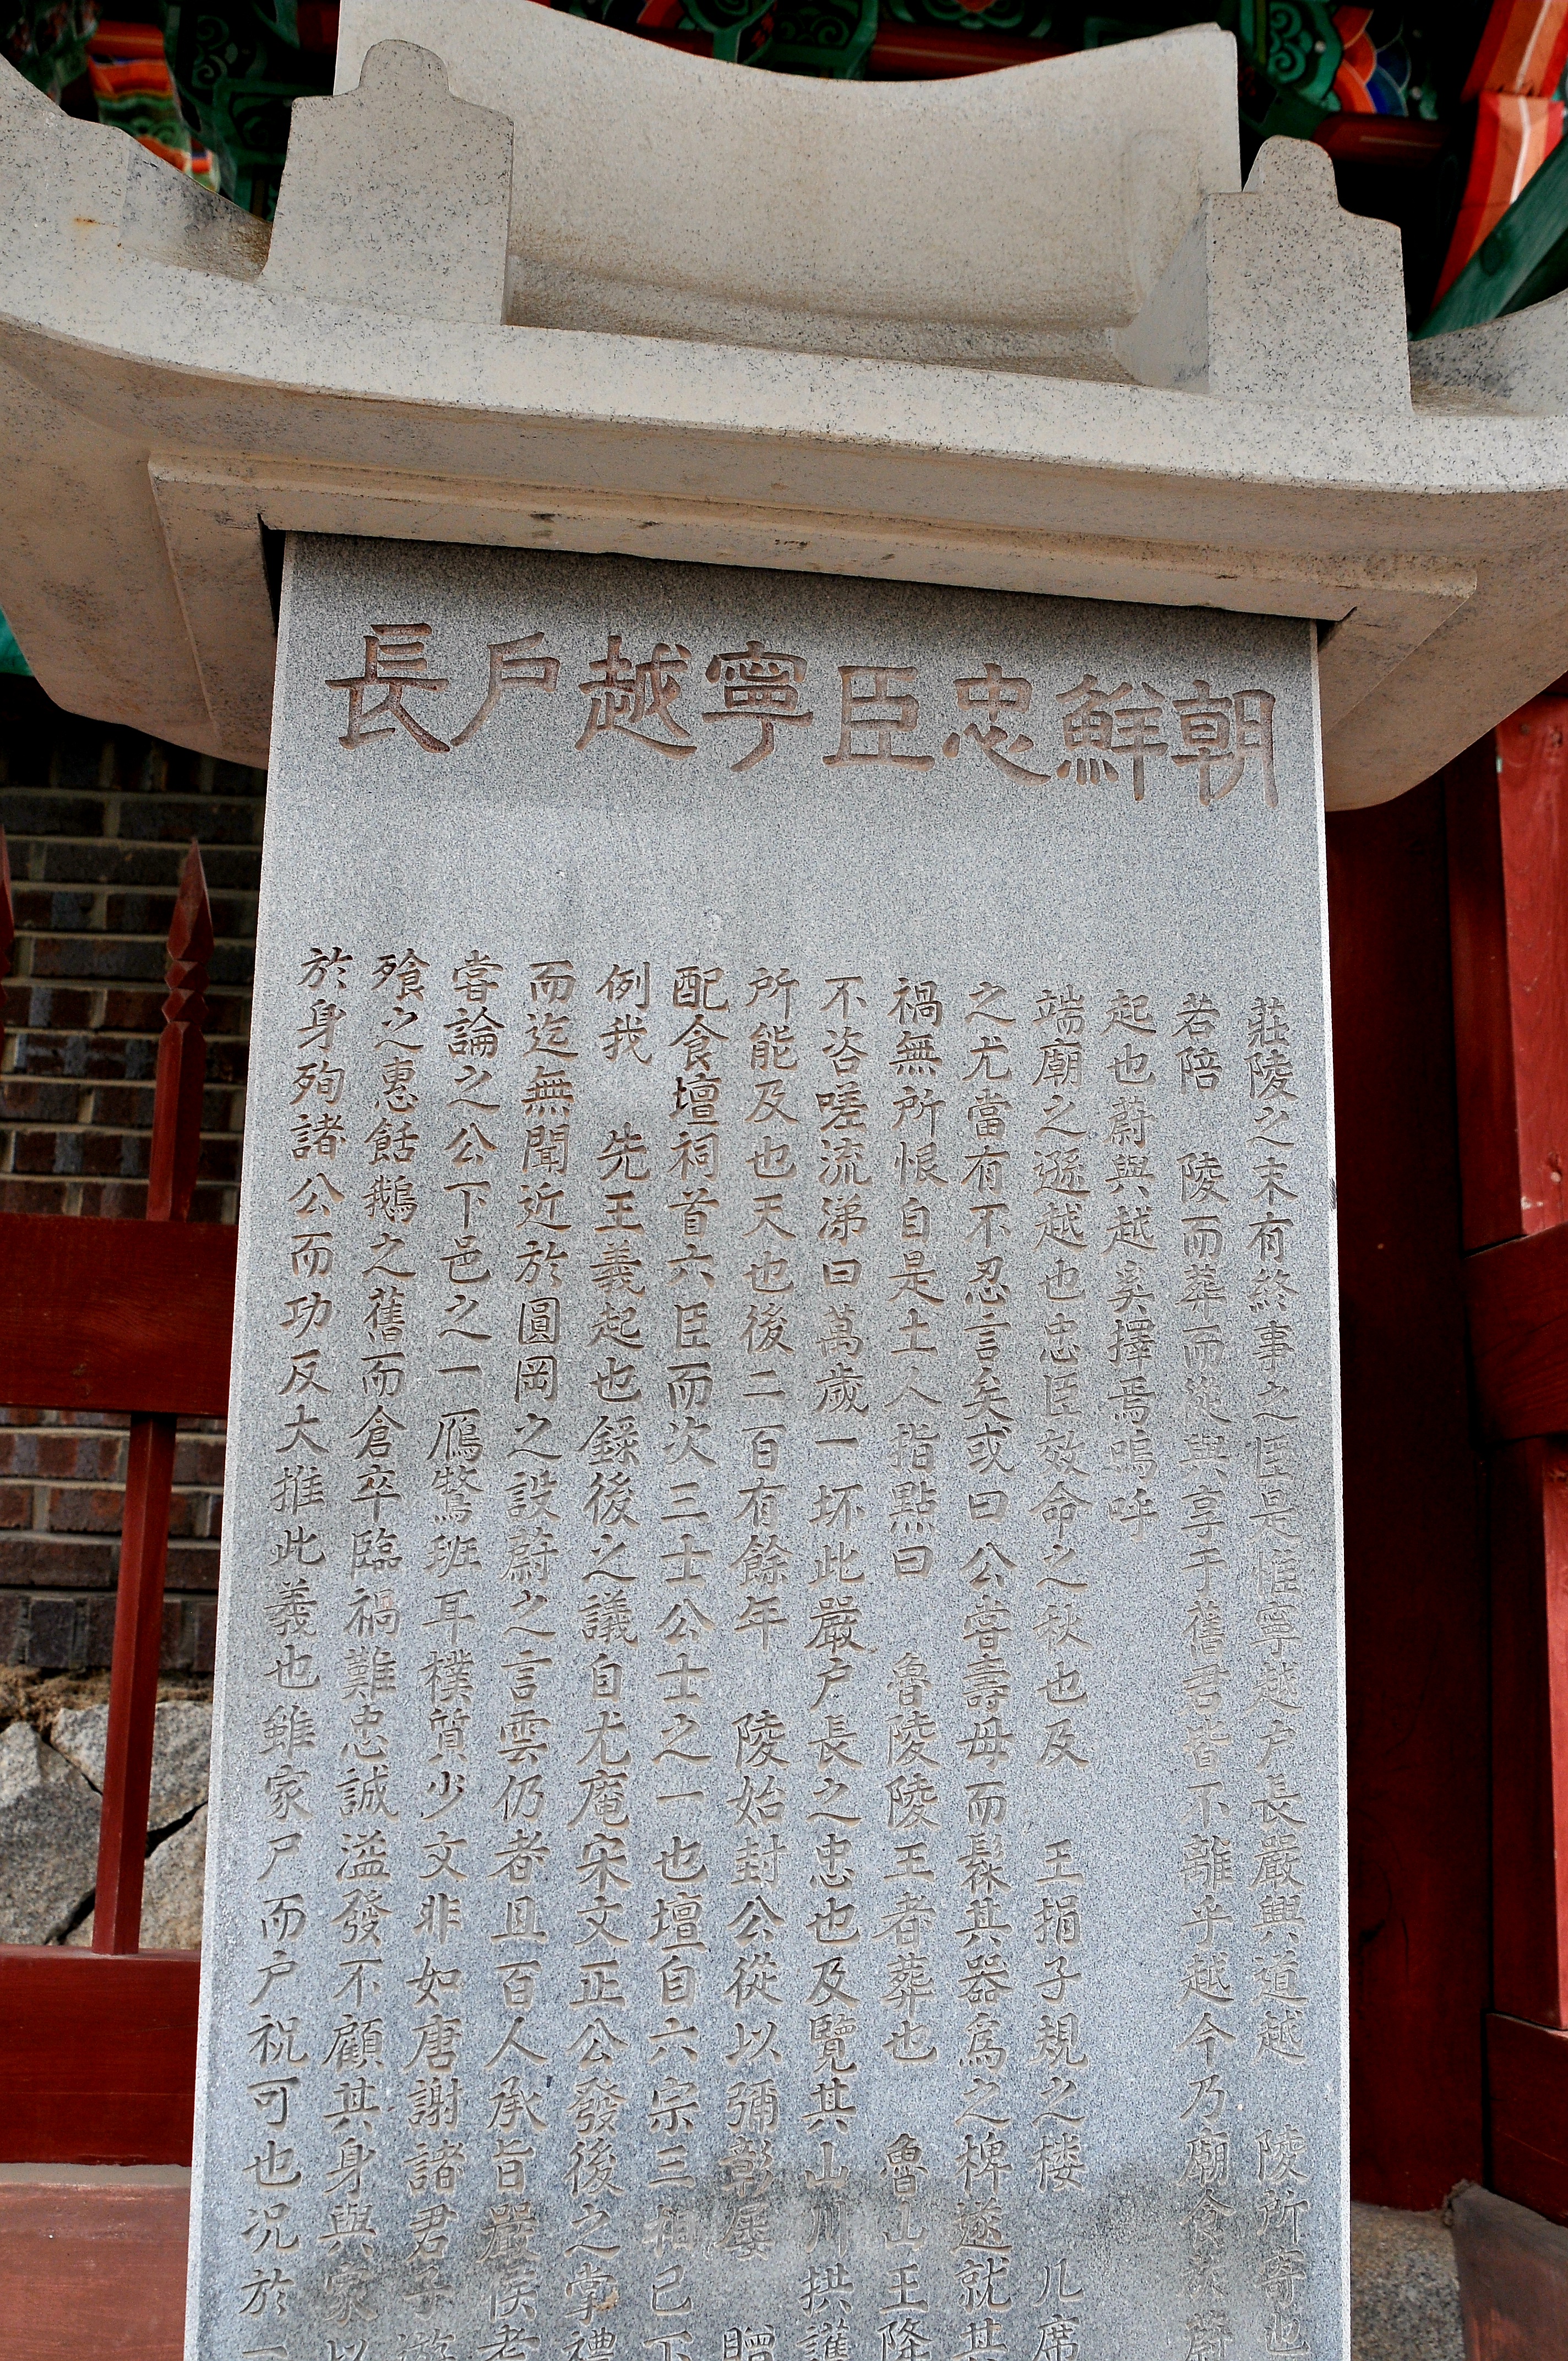 朝鮮忠臣寧越戶長
莊陵之末有終事之臣是惟寧越戶長嚴興道越 陵所寄也
若陪 陵而葬而從與享于舊君皆不離乎越今乃廟食於蔚
起也蔚與越奚擇焉嗚呼
端廟之遜越也忠臣效命之秋也及 王捐子規之樓 几席
之尤當有不忍言矣或曰公嘗壽母而髹其器爲之椑遂就其
禍無所恨自是土人指點曰 魯陵陵王者葬也 魯山王降
不咨嗟流涕曰萬歲一抔此嚴戶長之忠也及覽其山川拱護
所能及也天也後二百有餘年 陵始封公從以彌彰屢 贈
配食壇祠首六臣而次三士公士之一也壇自六宗三相已下
例我 先王義起也錄後之議自尤庵宋文正公發後之掌禮
而迄無聞近於圓岡之設蔚之言雲仍者且百人承旨嚴俟老
嘗論之公下邑之一鴈鶩班耳樸質少文非如唐謝諸君子遊
飱之惠餂鵝之舊而倉卒臨禍難忠誠溢發不顧其身與家以
於身殉諸公而功反大推此義也雖家尸而户祝可也况於一